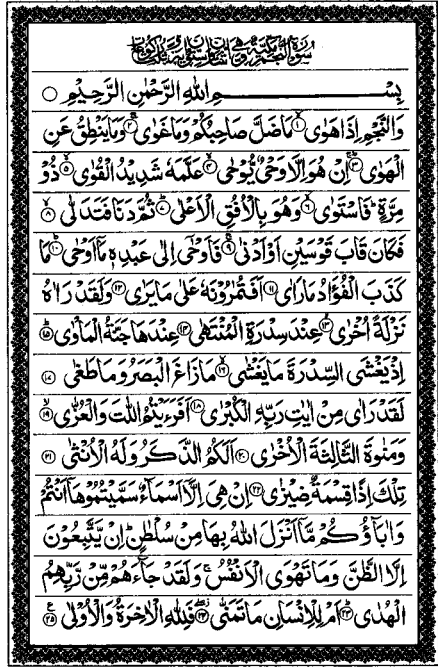 بِسْمِ اللهِ الرَّحْمٰنِ الرَّحِيْمِ ○
وَالنَّجْمِ اِذَا هَوٰى ۱ مَا ضَلَّ صَاحِبُكُمْ وَمَا غَوٰى ۲ وَمَا يَنْطِقُ عَنِ
الْهَوٰى ۳ اِنْ هُوَ اِلَّا وَحْيٌ يُّوْحٰى ۴ عَلَّمَهٗ شَدِيْدُ الْقُوٰى ۵ ذُوْ
مِرَّةٍ فَاسْتَوٰى ۶ وَهُوَ بِالْاُفُقِ الْاَعْلٰى ۷ ثُمَّ دَنَا فَتَدَلّٰى ۸
فَكَانَ قَابَ قَوْسَيْنِ اَوْ اَدْنٰى ۹ فَاَوْحٰى اِلٰى عَبْدِهٖ مَا اَوْحٰى ۱۰ مَا
كَذَبَ الْفُؤَادُ مَا رَاٰى ۱۱ اَفَتُمٰرُوْنَهٗ عَلٰى مَا يَرٰى ۱۲ وَلَقَدْ رَاٰهُ
نَزْلَةً اُخْرٰى ۱۳ عِنْدَ سِدْرَةِ الْمُنْتَهٰى ۱۴ عِنْدَهَا جَنَّةُ الْمَاْوٰى ۱۵
اِذْ يَغْشَى السِّدْرَةَ مَا يَغْشٰى ۱۶ مَا زَاغَ الْبَصَرُ وَمَا طَغٰى ۱۷
لَقَدْ رَاٰى مِنْ اٰيٰتِ رَبِّهِ الْكُبْرٰى ۱۸ اَفَرَءَيْتُمُ اللّٰتَ وَالْعُزّٰى ۱۹
وَمَنٰوةَ الثَّالِثَةَ الْاُخْرٰى ۲۰ اَلَكُمُ الذَّكَرُ وَلَهُ الْاُنْثٰى ۲۱
تِلْكَ اِذًا قِسْمَةٌ ضِيْزٰى ۲۲ اِنْ هِيَ اِلَّا اَسْمَآءٌ سَمَّيْتُمُوْهَا اَنْتُمْ
وَاٰبَآؤُكُمْ مَّا اَنْزَلَ اللهُ بِهَا مِنْ سُلْطٰنٍ اِنْ يَّتَّبِعُوْنَ
اِلَّا الظَّنَّ وَمَا تَهْوَى الْاَنْفُسُ وَلَقَدْ جَآءَهُمْ مِّنْ رَّبِّهِمُ
الْهُدٰى ۲۳ اَمْ لِلْاِنْسَانِ مَا تَمَنّٰى ۲۴ فَلِلّٰهِ الْاٰخِرَةُ وَالْاُوْلٰى ۲۵